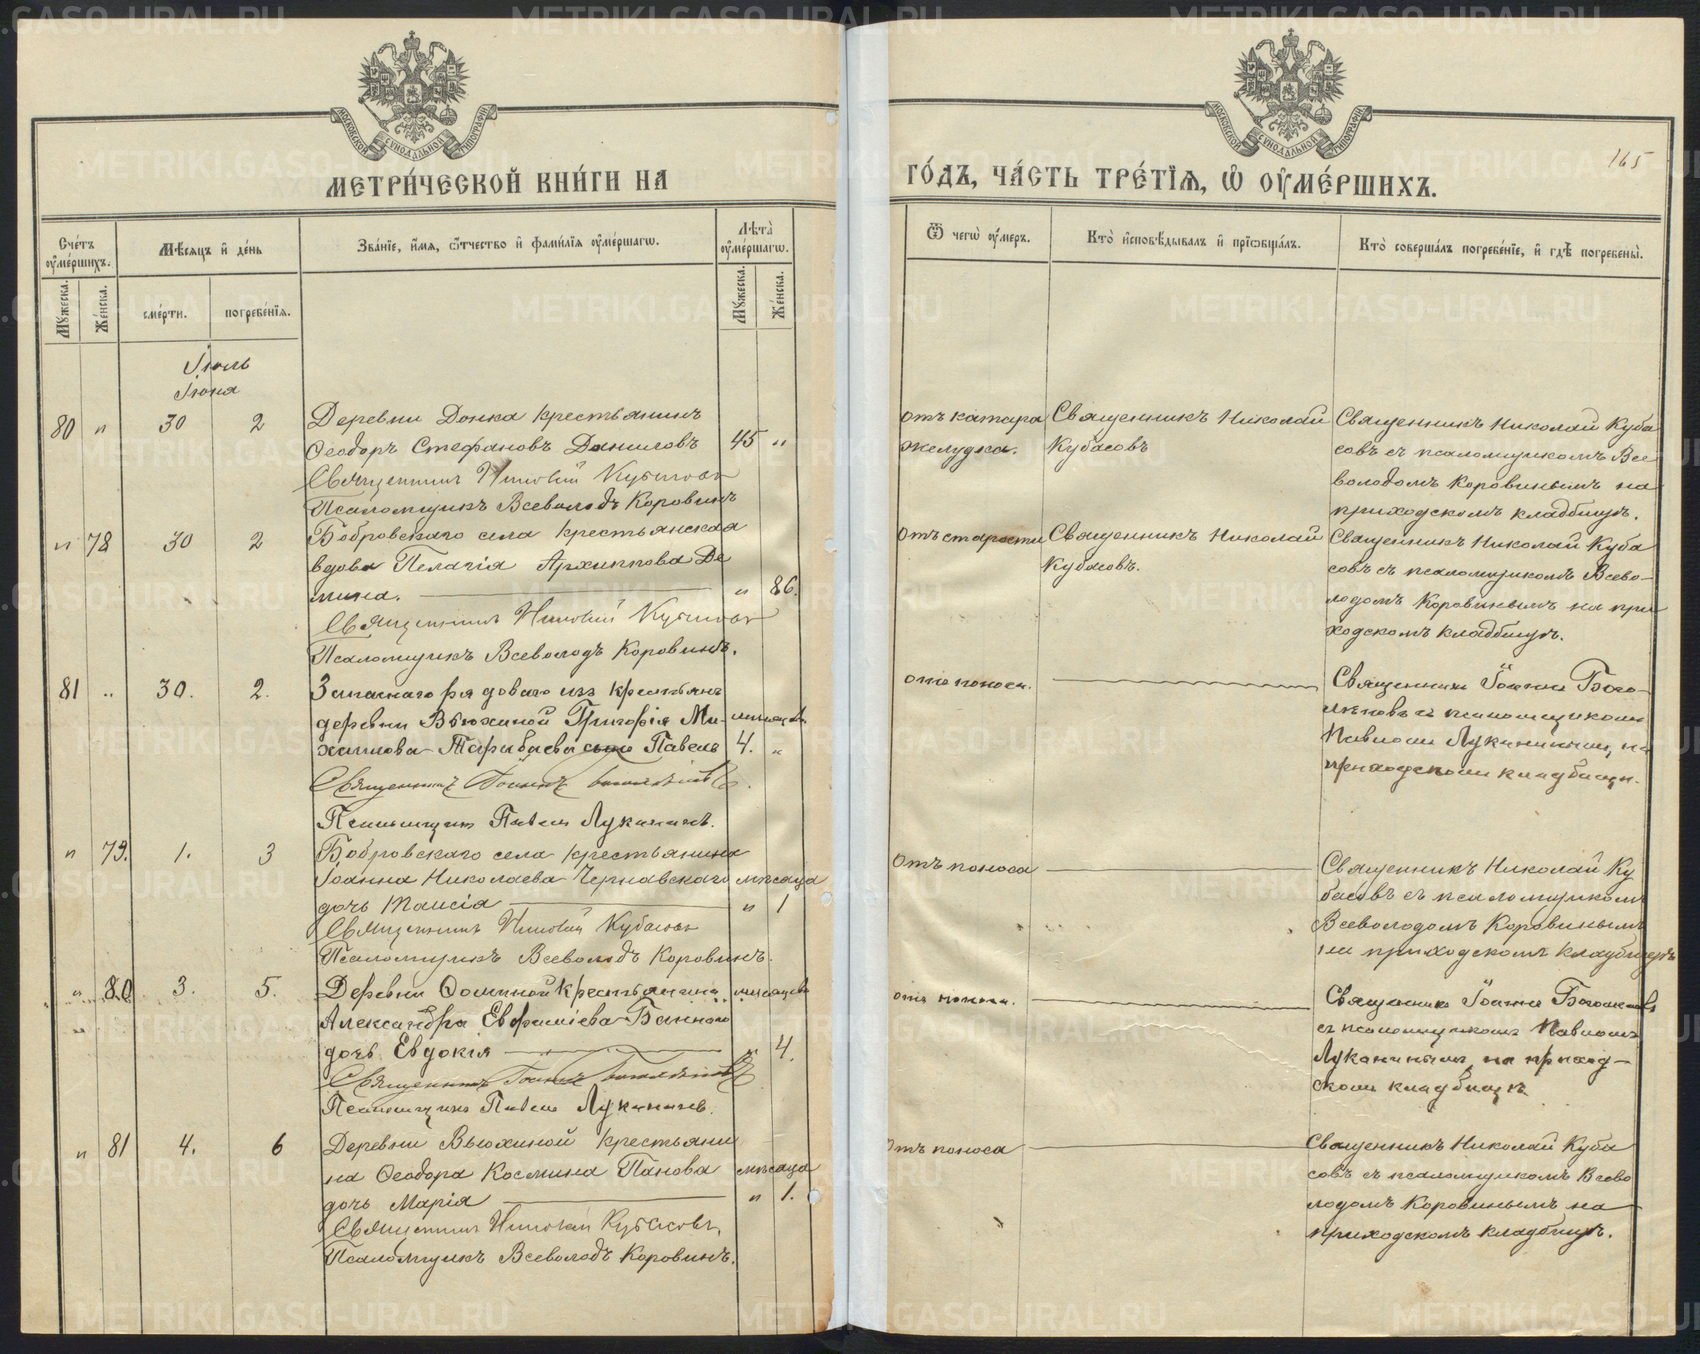 МЕТРИ́ЧЕСКОЙ КНИ́ГИ НА
ГО́ДЪ, ЧА́СТЬ ТРЕ́ТІѦ, Ѡ҆ ОУ҆МЕ́РШИХЪ.
165
Сче́тъ оу҆ме́ршихъ.
Мѣ́сяцъ и҆ де́нь
Зва́нїе, и҆́мя, ѻ҆́тчество и҆ фами́лїя оу҆ме́ршагѡ.
Лѣ́та оу҆ме́ршагѡ.
Мꙋ́жеска.
Же́нска.
сме́рти.
погребе́нїя.
Мꙋ́жеска.
Же́нска.
Ѿ чегѡ̀ оу҆́меръ.
Кто̀ и҆сповѣ́дывалъ и҆ прїѡбща́лъ.
Кто̀ соверша́лъ погребе́нїе, и҆ гдѣ̀ погребены̀.
Іюль
Іюня
80 " 30 2
Деревни Донка крестьянинъ
Ѳеодоръ Стефановъ Даниловъ 45 "
Священникъ Николай Кубасовъ
Псаломщикъ Всеволодъ Коровинъ
отъ катара
желудка.
Священникъ Николай
Кубасовъ
Священникъ Николай Куба
совъ съ псаломщикомъ Все
володомъ Коровинымъ на
приходскомъ кладбищѣ.
" 78 30 2
Бобровскаго села крестьянская
вдова Пелагія Архиппова Де
мина. " 86.
Священникъ Николай Кубасовъ
Псаломщикъ Всеволодъ Коровинъ.
Отъ старости
Священникъ Николай
Кубасовъ.
Священникъ Николай Куба
совъ съ псаломщикомъ Всево-
лодомъ Коровинымъ на при
ходскомъ кладбищѣ.
81 " 30. 2.
Запаснаго рядоваго изъ крестьянъ
деревни Вьюхиной Григорія Ми-
хаилова сынъ Павелъ 4. "
Священникъ Іоаннъ
Псаломщикъ Павелъ Луканинъ.
отъ поноса.
Священникъ Іоаннъ Бого-
съ псаломщикомъ
Павломъ Луканинымъ на
приходскомъ кладбищѣ.
" 79. 1. 3
Бобровскаго села крестьянина
Іоанна Николаева Чернавскаго мѣсяца
дочь Таисія " 1
Священникъ Николай Кубасовъ
Псаломщикъ Всеволодъ Коровинъ.
Отъ поноса
Священникъ Николай Ку
басовъ съ псаломщикомъ
Всеволодомъ Коровинымъ
на приходскомъ кладбищѣ
" 80 3. 5.
Деревни Ѳоминой крестьянина мѣсяцевъ
Александра Евфиміева Баннаго
дочь Евдокія " 4.
Священникъ Іоаннъ
Псаломщикъ Павелъ Луканинъ.
отъ поноса.
Священникъ Іоаннъ
съ псаломщикомъ Павломъ
Луканинымъ на приход-
скомъ кладбищѣ
" 81 4. 6
Деревни Вьюхиной крестьяни
на Ѳеодора Космина Панова мѣсяца
дочь Марія " 1.
Священникъ Николай Кубасовъ,
Псаломщикъ Всеволодъ Коровинъ.
Отъ поноса
Священникъ Николай Куба
совъ съ псаломщикомъ Всево
лодомъ Коровинымъ на
приходскомъ кладбищѣ.
METRIKI.GASO-URAL.RU